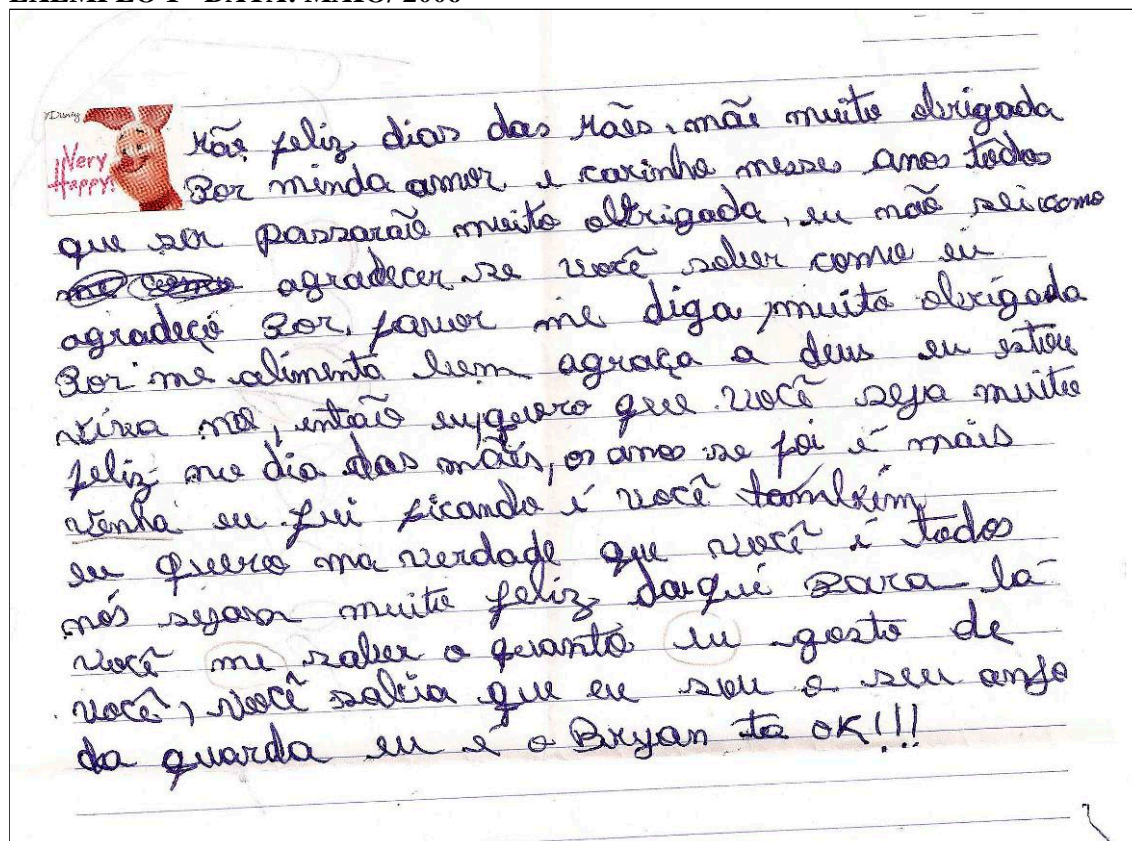 EXEMPLO 1 - DATA: MAIO/ 2006
©Disney
Very
Happy!
Mãe feliz dias das Mães, mãe muito obrigada
Por minda amor e carinho nesses anos todos
que ser passarão muito obtrigada, eu não sei como
agradecer se você saber como eu
agradeço Por, favor me diga, muito obrigada
Por me alimenta bem agraça a deus eu estou
viva né, então eu quero que você seja muito
feliz no dia das mães, os anos se foi é mais
venha eu fui ficando é você também
eu quero na verdade que você é todos
nós sejam muito feliz daqui para lá
você me saber o quanto eu gosto de
você, você sabia que eu sou o seu anjo
da guarda eu é o Bryan ta OK!!!